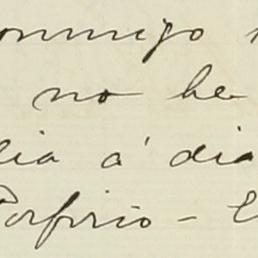 onmigo
no he
dia á dia
Porfirio - E